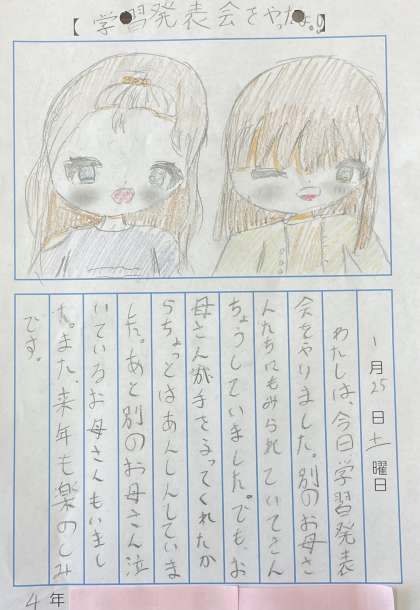 【学習発表会をやったよ!!】
1月25日土曜日
わたしは、今日学習発表
会をやりました。別のお母さ
んたちにもみられていてきん
ちょうしていました。でも、お
母さんが手をふってくれたか
らちょっとはあんしんしていま
した。あと別のお母さん泣
いているお母さんもいまし
た。また、来年も楽のしみ
です。
4年